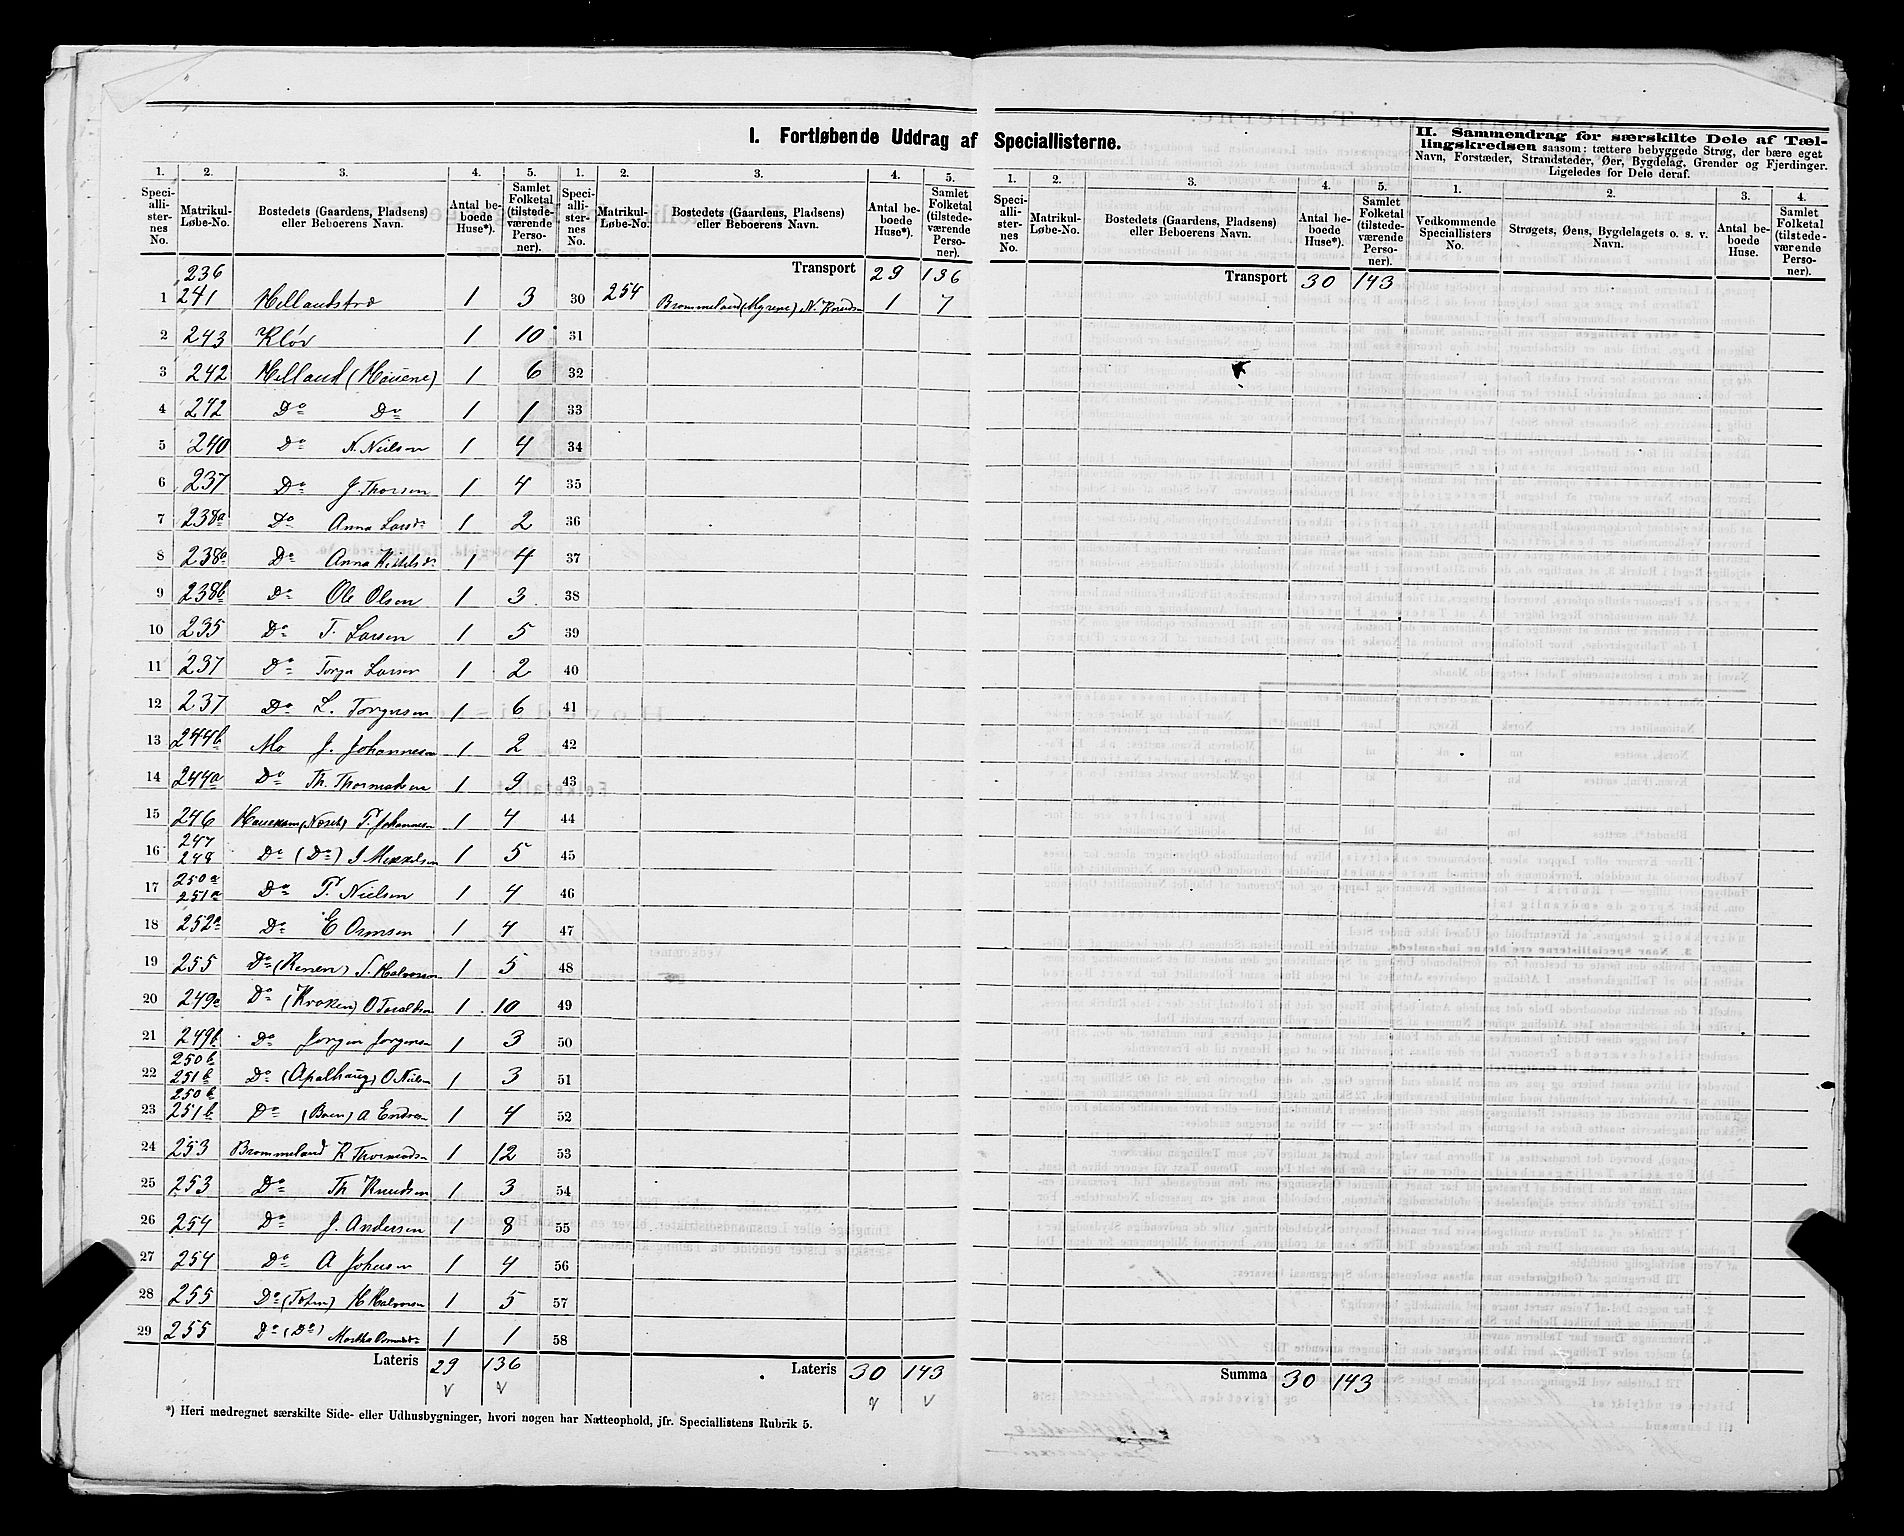 I. Fortløbende Uddrag af Speciallisterne.
II. Sammendrag for særskilte Dele af Tæl-
lingskredsen saasom: tættere bebyggede Strøg, der bære eget
Navn, Forstæder, Strandsteder, Øer, Bygdelag, Grender og Fjerdinger.
Ligeledes for Dele deraf.
1. 2. 3. 4. 5. 1. 2. 3. 4. 5. 1. 2. 3. 4. 5. 1. 2. 3. 4.
Speciallisternes No. Matrikul-Løbe-No. Bostedets (Gaardens, Pladsens) eller Beboerens Navn. Antal beboede Huse*). Samlet Folketal (tilstedeværende Personer).
Speciallisternes No. Matrikul-Løbe-No. Bostedets (Gaardens, Pladsens) eller Beboerens Navn. Antal beboede Huse*). Samlet Folketal (tilstedeværende Personer).
Speciallisternes No. Matrikul-Løbe-No. Bostedets (Gaardens, Pladsens) eller Beboerens Navn. Antal beboede Huse*). Samlet Folketal (tilstedeværende Personer).
Vedkommende Speciallisters No. Strøgets, Øens, Bygdelagets o. s. v. Navn. Antal beboede Huse. Samlet Folketal (tilstedeværende Personer).
Transport 29 136
Transport 30 143
236
1 241 Hellandstræ 1 3 30 254 Brommeland (Myrene) N. Knuds 1 7
2 243 Kløv 1 10 31
3 242 Helland (Hauene) 1 6 32
4 242 Do Do 1 1 33
5 240 Do N. Nielsen 1 4 34
6 237 Do J. Thorsen 1 4 35
7 238a Do Anna Larsdr 1 2 36
8 238a Do Anna Kittelsdr 1 4 37
9 238b Do Ole Olsen 1 3 38
10 235 Do T. Larsen 1 5 39
11 237 Do Torger Larsen 1 2 40
12 237 Do L. Torgersen 1 6 41
13 244b Mo J. Johannesen 1 2 42
14 244a Do Th. Thormodsen 1 9 43
15 246 T. Johannesn 1 4 44
247
16 248 Do (Do) 1 5 45
250a
17 251a Do T. Nielsen 1 4 46
18 252a Do E Ormsen 1 4 47
19 255 Do (Renen) S. Halvorsen 1 5 48
20 249a Do (Kroken) O Toraldsen 1 10 49
21 249b Do Jørgen Jørgensn 1 3 50
250b
22 251b Do (Apalhaug) O Nielsn 1 3 51
250b
23 251b Do (Boen) A Endresn 1 4 52
24 253 Brommeland K Thormodsn 1 12 53
25 253 Do Th Knudsen 1 3 54
26 254 Do J. Andersen 1 8 55
27 254 Do A Johnsen 1 4 56
28 255 Do (Toten) H Halvorsen 1 5 57
29 255 Do (Do) Martha 1 1 58
Lateris 29 136
Lateris 30 143
Summa 30 143
*) Heri medregnet særskilte Side- eller Udhusbygninger, hvori nogen har Natteophold, jfr. Speciallistens Rubrik 5.